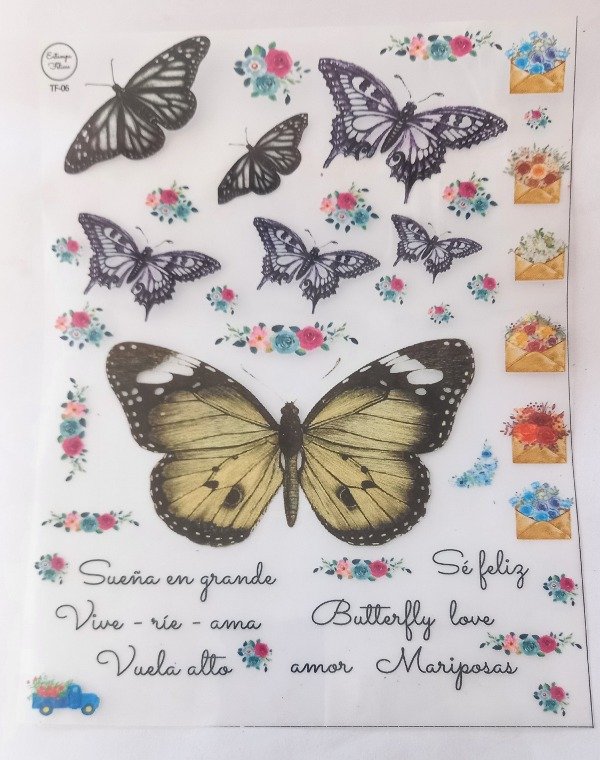 Estampa
Fácil
TF-06
Sueña en grande
Sé feliz
Vive - ríe - ama
Butterfly love
Vuela alto
amor
Mariposas